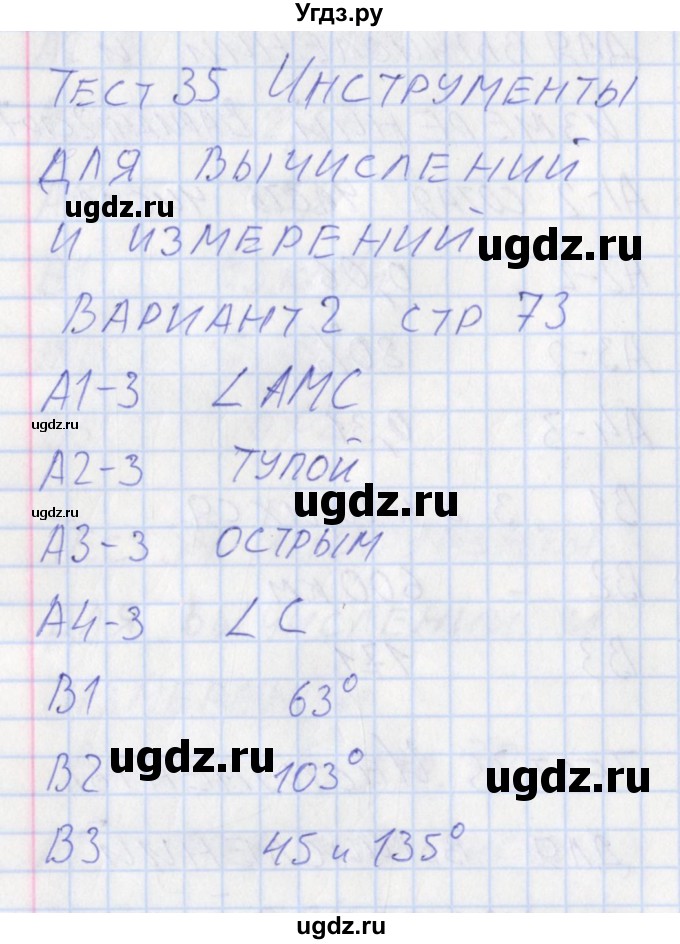 Угдз.ру
ТЕСТ 35 ИНСТРУМЕНТЫ
ДЛЯ ВЫЧИСЛЕНИЙ
ugdz.ru
И ИЗМЕРЕНИЙ
ugdz.ru
ВАРИАНТ 2 СТР 73
А1-3 ∠АМС
ugdz.ru
А2-3 ТУПОЙ
ugdz.ru
ugdz.ru
А3-3 ОСТРЫМ
А4-3 ∠С
В1 63°
ugdz.ru
В2 103°
ugdz.ru
В3 45 и 135°
ugdz.ru